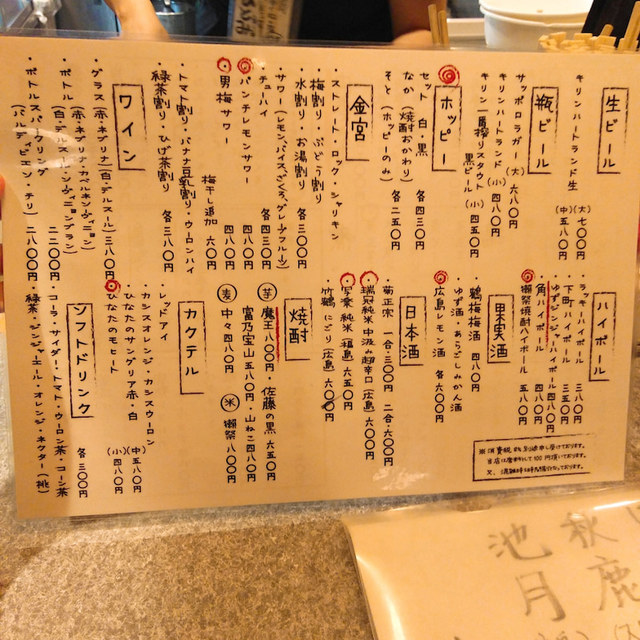 生ビール
キリンハートランド生
(大)七〇〇円
(中)五八〇円
瓶ビール
サッポロラガー(大)六八〇円
キリンハートランド(小)四八〇円
キリン一番搾りスタウト
黒ビール(小)五四〇円
ホッピー
セット 白・黒 各四三〇円
なか(焼酎おかわり)
そと(ホッピーのみ) 各二五〇円
金宮
・ストレート・ロック・シャリキン
・梅割り・ぶどう割り
・水割り・お湯割り 各三〇〇円
・サワー(レモン、バイス、ざくろ、グレープフルーツ)
・チューハイ 各四三〇円
・パンチレモンサワー 四八〇円
・男梅サワー 四八〇円
梅干し追加 六〇円
・トマト割り・バナナ豆乳割り・ウーロンハイ
・緑茶割り・ひげ茶割り 各三八〇円
ワイン
・グラス(赤・ネグリナ)(白・デルスール)三八〇円
・ボトル(赤・ネグリナ・カベルネ・
(白・デルスール・ 二二〇〇円
・ボトルスパークリング
(バルディビエソ・チリ)二八〇〇円
ハイボール
・ラッキーハイボール 三八〇円
・下町ハイボール 三五〇円
・ゆずジンジャーハイボール 四八〇円
・角ハイボール 四八〇円
・獺祭焼酎ハイボール 五八〇円
果実酒
・鶴梅梅酒 四八〇円
・ゆず酒・あらごしみかん酒
・広島レモン酒 各六〇〇円
日本酒
・菊正宗 一合・三〇〇円 二合・六〇〇円
・瑞冠純米中汲み超辛口(広島)六〇〇円
・写楽 純米(福島)六五〇円
・竹鶴 にごり(広島)六〇〇円
焼酎
芋 魔王八〇〇円・佐藤の黒六五〇円
富乃宝山五八〇円・山ねこ四八〇円
麦 中々四八〇円 米 獺祭八〇〇円
カクテル
・レッドアイ
・カシスオレンジ・カシスウーロン
・ひなたのサングリア赤・白 (中)五八〇円
・ひなたのモヒート (小)四八〇円
ソフトドリンク
・コーラ・サイダー・トマト・ウーロン茶・コーン茶
・緑茶・ジンジャーエール・オレンジ・ネクター(桃)
各三〇〇円
※消費税別途申し受けております。
当店は席料として100円頂いております。
又、満席時は2時間制となっております。
秋鹿
池月